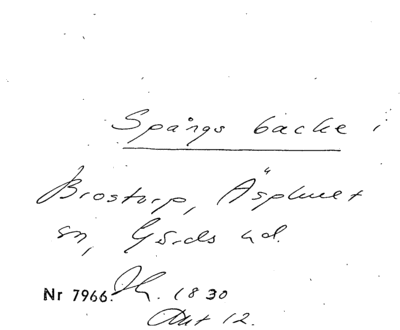 Spångs backe i
Brostorp, Äsphult
sn, Gärds hd.
Nr 7966. 1830
Akt 12.